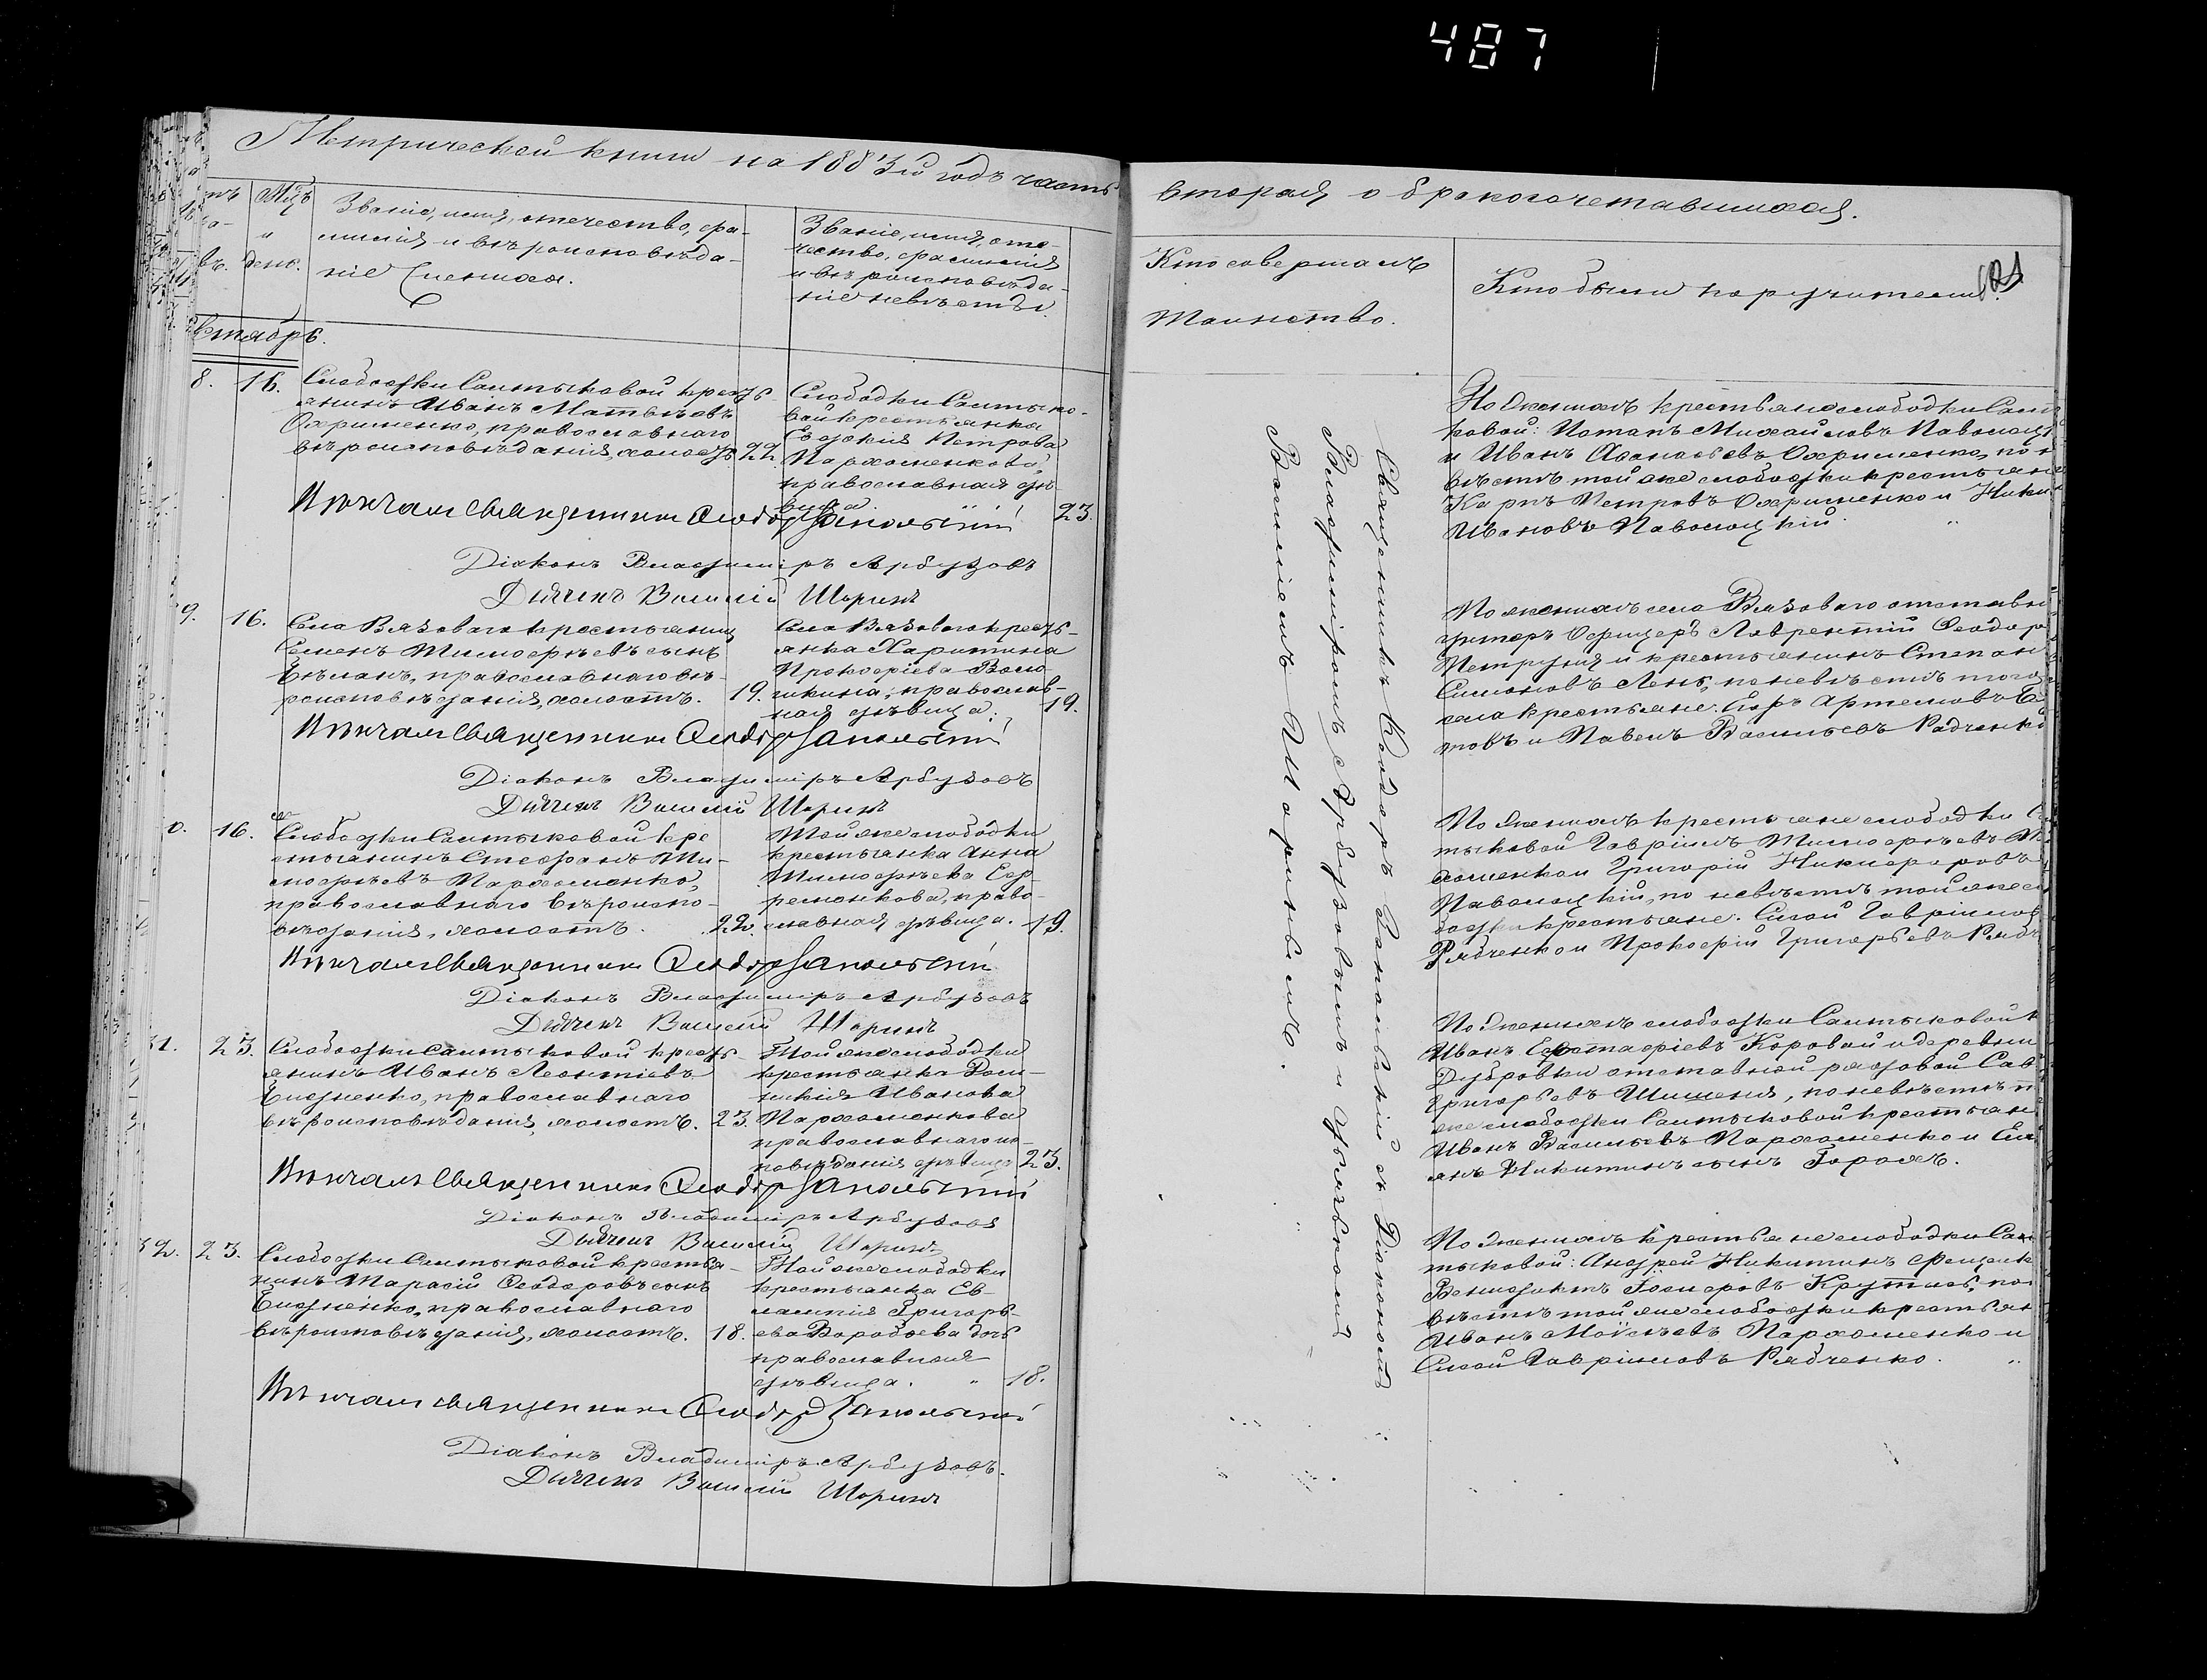 487
Метрической книги на 1883й годъ часть
вторая о бракосочетавшихся.
Мцъ
и
день.
Званіе, имя, отчество, фа-
милія и вѣроисповѣда-
ніе Жениха.
Званіе, имя, оте-
чество, фамилія
и вѣроисповѣда-
ніе невѣсты.
Кто совершалъ
Таинство.
Кто были поручители
8. 16.
Слободки Салтыковой кресть-
янинъ Иванъ Матвѣевъ
Охрименко, православнаго
вѣроисповѣданія, холостъ 22.
Слободки Салтыко-
вой крестьянка
Евдокія Петрова
Пархоменкова,
православная дѣ-
вица. 23.
По женихѣ крестьяне слободки Салт
ковой: Потапъ Михайловъ Паволоц
и Иванъ Аѳанасьевъ Охрименко, по н
вѣстѣ той же слободки крестьяне
Карпъ Петровъ Охрименко и Ники
Ивановъ Паволоцкій.
Священникъ Ѳеодоръ Запольскій
Діаконъ Владиміръ Арбузовъ
Дьячекъ Василій Шоринъ
9. 16.
Села Вязоваго крестьянинъ
Семенъ Тимоѳѣевъ сынъ
православнаго вѣ-
роисповѣданія, холостъ. 19.
Села Вязоваго кресть-
янка Харитина
Прокофіева
православ-
ная дѣвица. 19.
По женихѣ села Вязоваго отставн
унтеръ Офицеръ Лаврентій Ѳеодор
Петруня и крестьянинъ Степан
Симоновъ по невѣстѣ того
села крестьяне: Егоръ Артемовъ
и Павелъ Васильевъ Радченко
Священникъ Ѳеодоръ Запольскій
Діаконъ Владиміръ Арбузовъ
Дьячекъ Василій Шоринъ
0. 16.
Слободки Салтыковой кре
стьянинъ Стефанъ Ти-
моѳѣевъ Пархоменко,
православнаго вѣроиспо-
вѣданія, холостъ. 22.
Той же слободки
крестьянка Анна
Тимоѳѣева Еф-
ременкова, право-
славная дѣвица. 19.
По женихѣ крестьяне слободки С
тыковой Гавріилъ Тимоѳѣевъ
хоменко и Григорій Никифоровъ
Паволоцкій, по невѣстѣ той же сл
бодки крестьяне: Сысой Гавріилов
Рябченко и Прокофій Григорьевъ Рябч
Священникъ Ѳеодоръ Запольскій
Діаконъ Владиміръ Арбузовъ
Дьячекъ Василій Шоринъ
31. 23.
Слободки Салтыковой кресть-
янинъ Иванъ Леонтіевъ
православнаго
вѣроисповѣданія, холостъ. 23.
Той же слободки
крестьянка
Иванова
Пархоменкова
православнаго ис-
повѣданія дѣвица 23.
По женихѣ слободки Салтыковой к
Иванъ Евстафіевъ Коровай и деревни
Дубровки отставной рядовой Сав
Григорьевъ Шишеня, по невѣстѣ т
же слободки Салтыковой крестьяне
Иванъ Васильевъ Пархоменко и Ем
янъ Никитинъ сынъ
Священникъ Ѳеодоръ Запольскій
Діаконъ Владиміръ Арбузовъ
Дьячекъ Василій Шоринъ
32. 23.
Слободки Салтыковой крестья-
нинъ Тарасій Ѳеодоровъ сынъ
православнаго
вѣроисповѣданія, холостъ. 18.
Той же слободки
крестьянка Ев-
лампія Григорь-
ева Воробьева дочь
православная
дѣвица. 18.
По женихѣ крестьяне слободки Сал
тыковой: Андрей Никитинъ
Венедиктъ по не
вѣстѣ той же слободки крестьяне
Иванъ Моѵсѣевъ Пархоменко и
Сысой Гавріиловъ Рябченко.
Священникъ Ѳеодоръ Запольскій
Діаконъ Владиміръ Арбузовъ.
Дьячекъ Василій Шоринъ
Священникъ Ѳеодоръ Запольскій съ Діакономъ
Владиміромъ Арбузовымъ и
Василіемъ Шоринымъ.